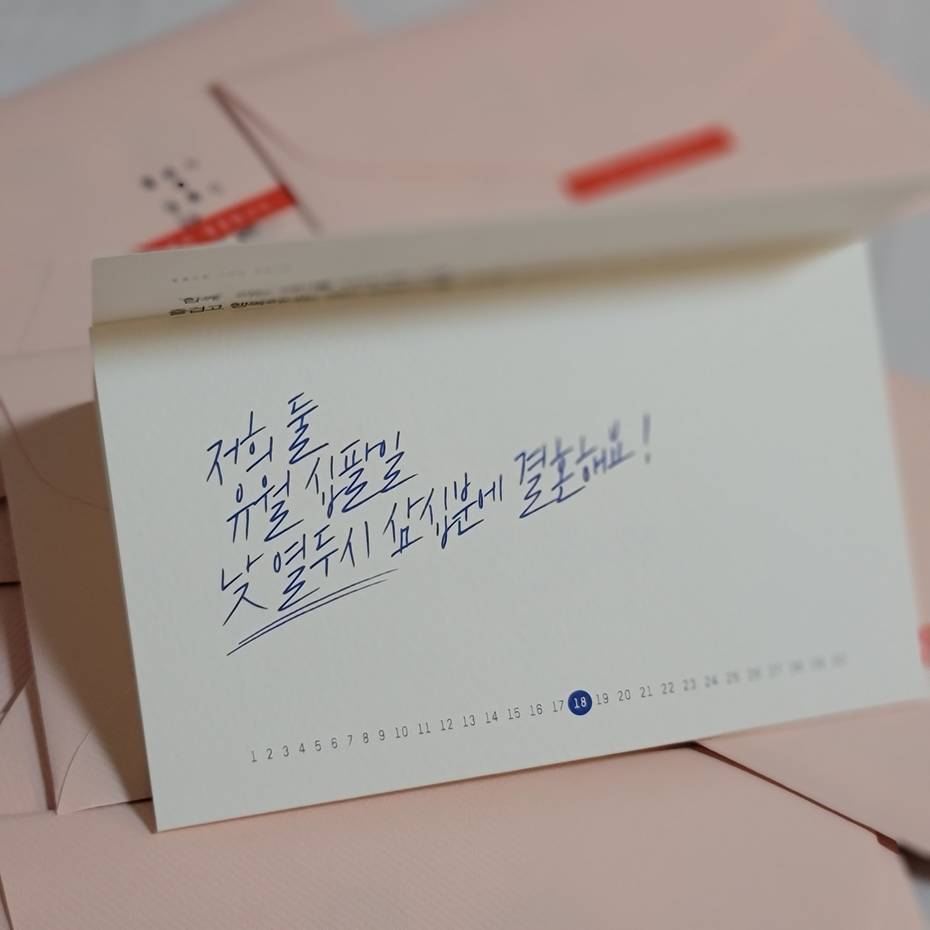 저희 둘
유월 십팔일
낮 열두시 삼십분에 결혼해요!
1 2 3 4 5 6 7 8 9 10 11 12 13 14 15 16 17 18 19 20 21 22 23 24 25 26 27 28 29 30